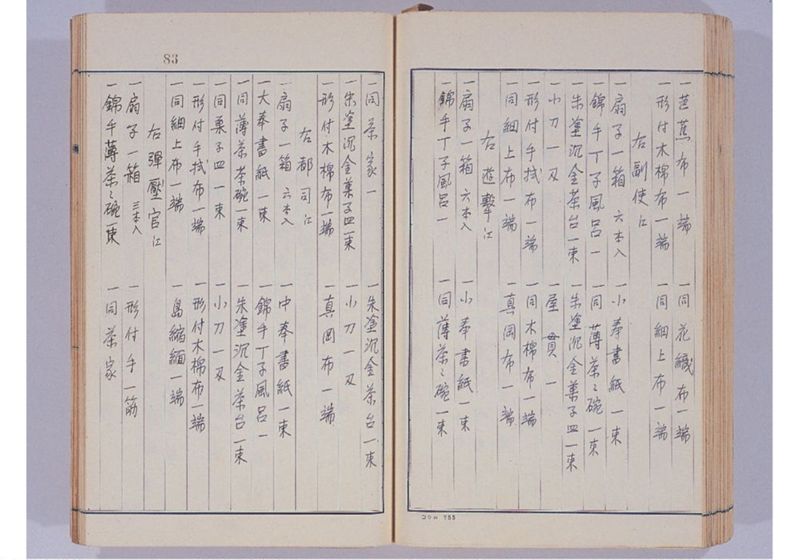 一芭蕉布一端 一同花織布一端
一形付木棉布一端 一同細上布一端
右副使江
一扇子一箱 六本入 一小奉書紙一束
一錦手丁子風呂一 一同薄茶々碗一束
一朱塗沉金茶台一束 一朱塗沉金菓子皿一束
一小刀一刄 一屋貫一
一形付手拭布一端 一同木棉布一端
一同細上布一端 一真岡布一端
右遊擊江
一扇子一箱 六本入 一小奉書紙一束
一錦手丁子風呂一 一同薄茶々碗一束
コクヨ 755
83
一同茶家一 一朱塗沉金茶台一束
一朱塗沉金菓子皿一束 一小刀一刄
一形付木棉布一端 一真岡布一端
右都司江
一扇子一箱 六本入 一中奉書紙一束
一大奉書紙一束 一錦手丁子風呂一
一同薄茶茶碗一束 一朱塗沉金茶台一束
一同菓子皿一束 一小刀一刄
一形付手拭布一端 一形付木棉布一端
一同細上布一端 一島縮緬一端
右彈壓官江
一扇子一箱 三本入 一形付手一筋
一錦手薄茶々碗一束 一同茶家